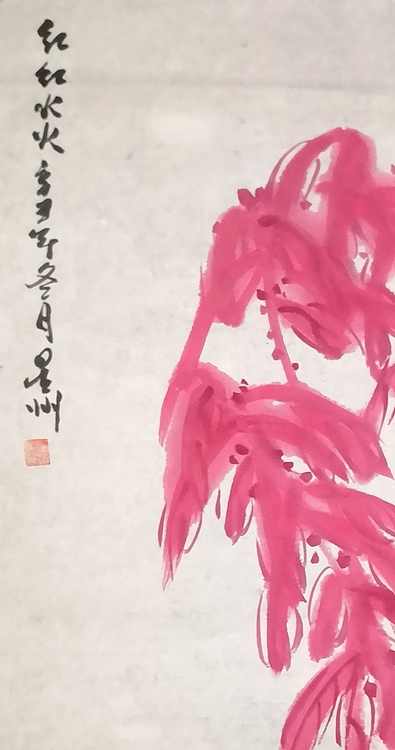 红红火火辛丑年冬月星州